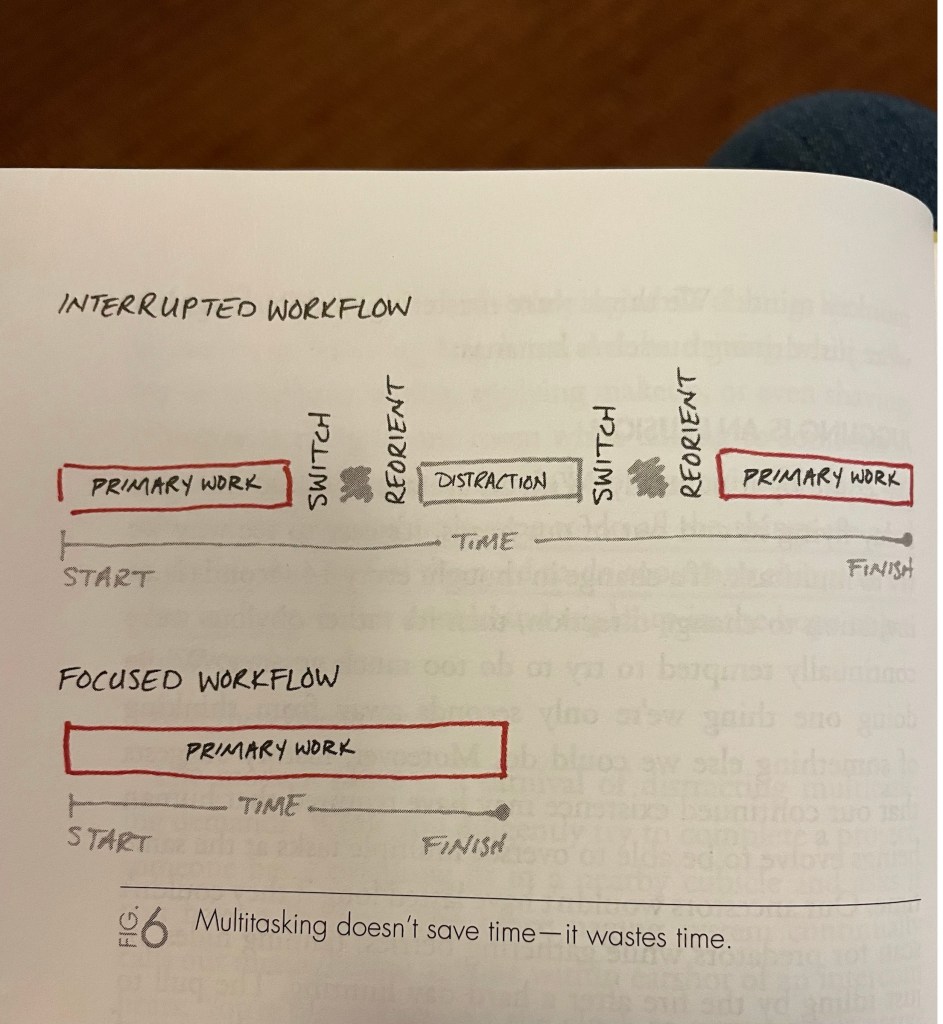 INTERRUPTED WORKFLOW
PRIMARY WORK SWITCH REORIENT DISTRACTION SWITCH REORIENT PRIMARY WORK
TIME
START FINISH
FOCUSED WORKFLOW
PRIMARY WORK
TIME
START FINISH
FIG. 6 Multitasking doesn't save time—it wastes time.